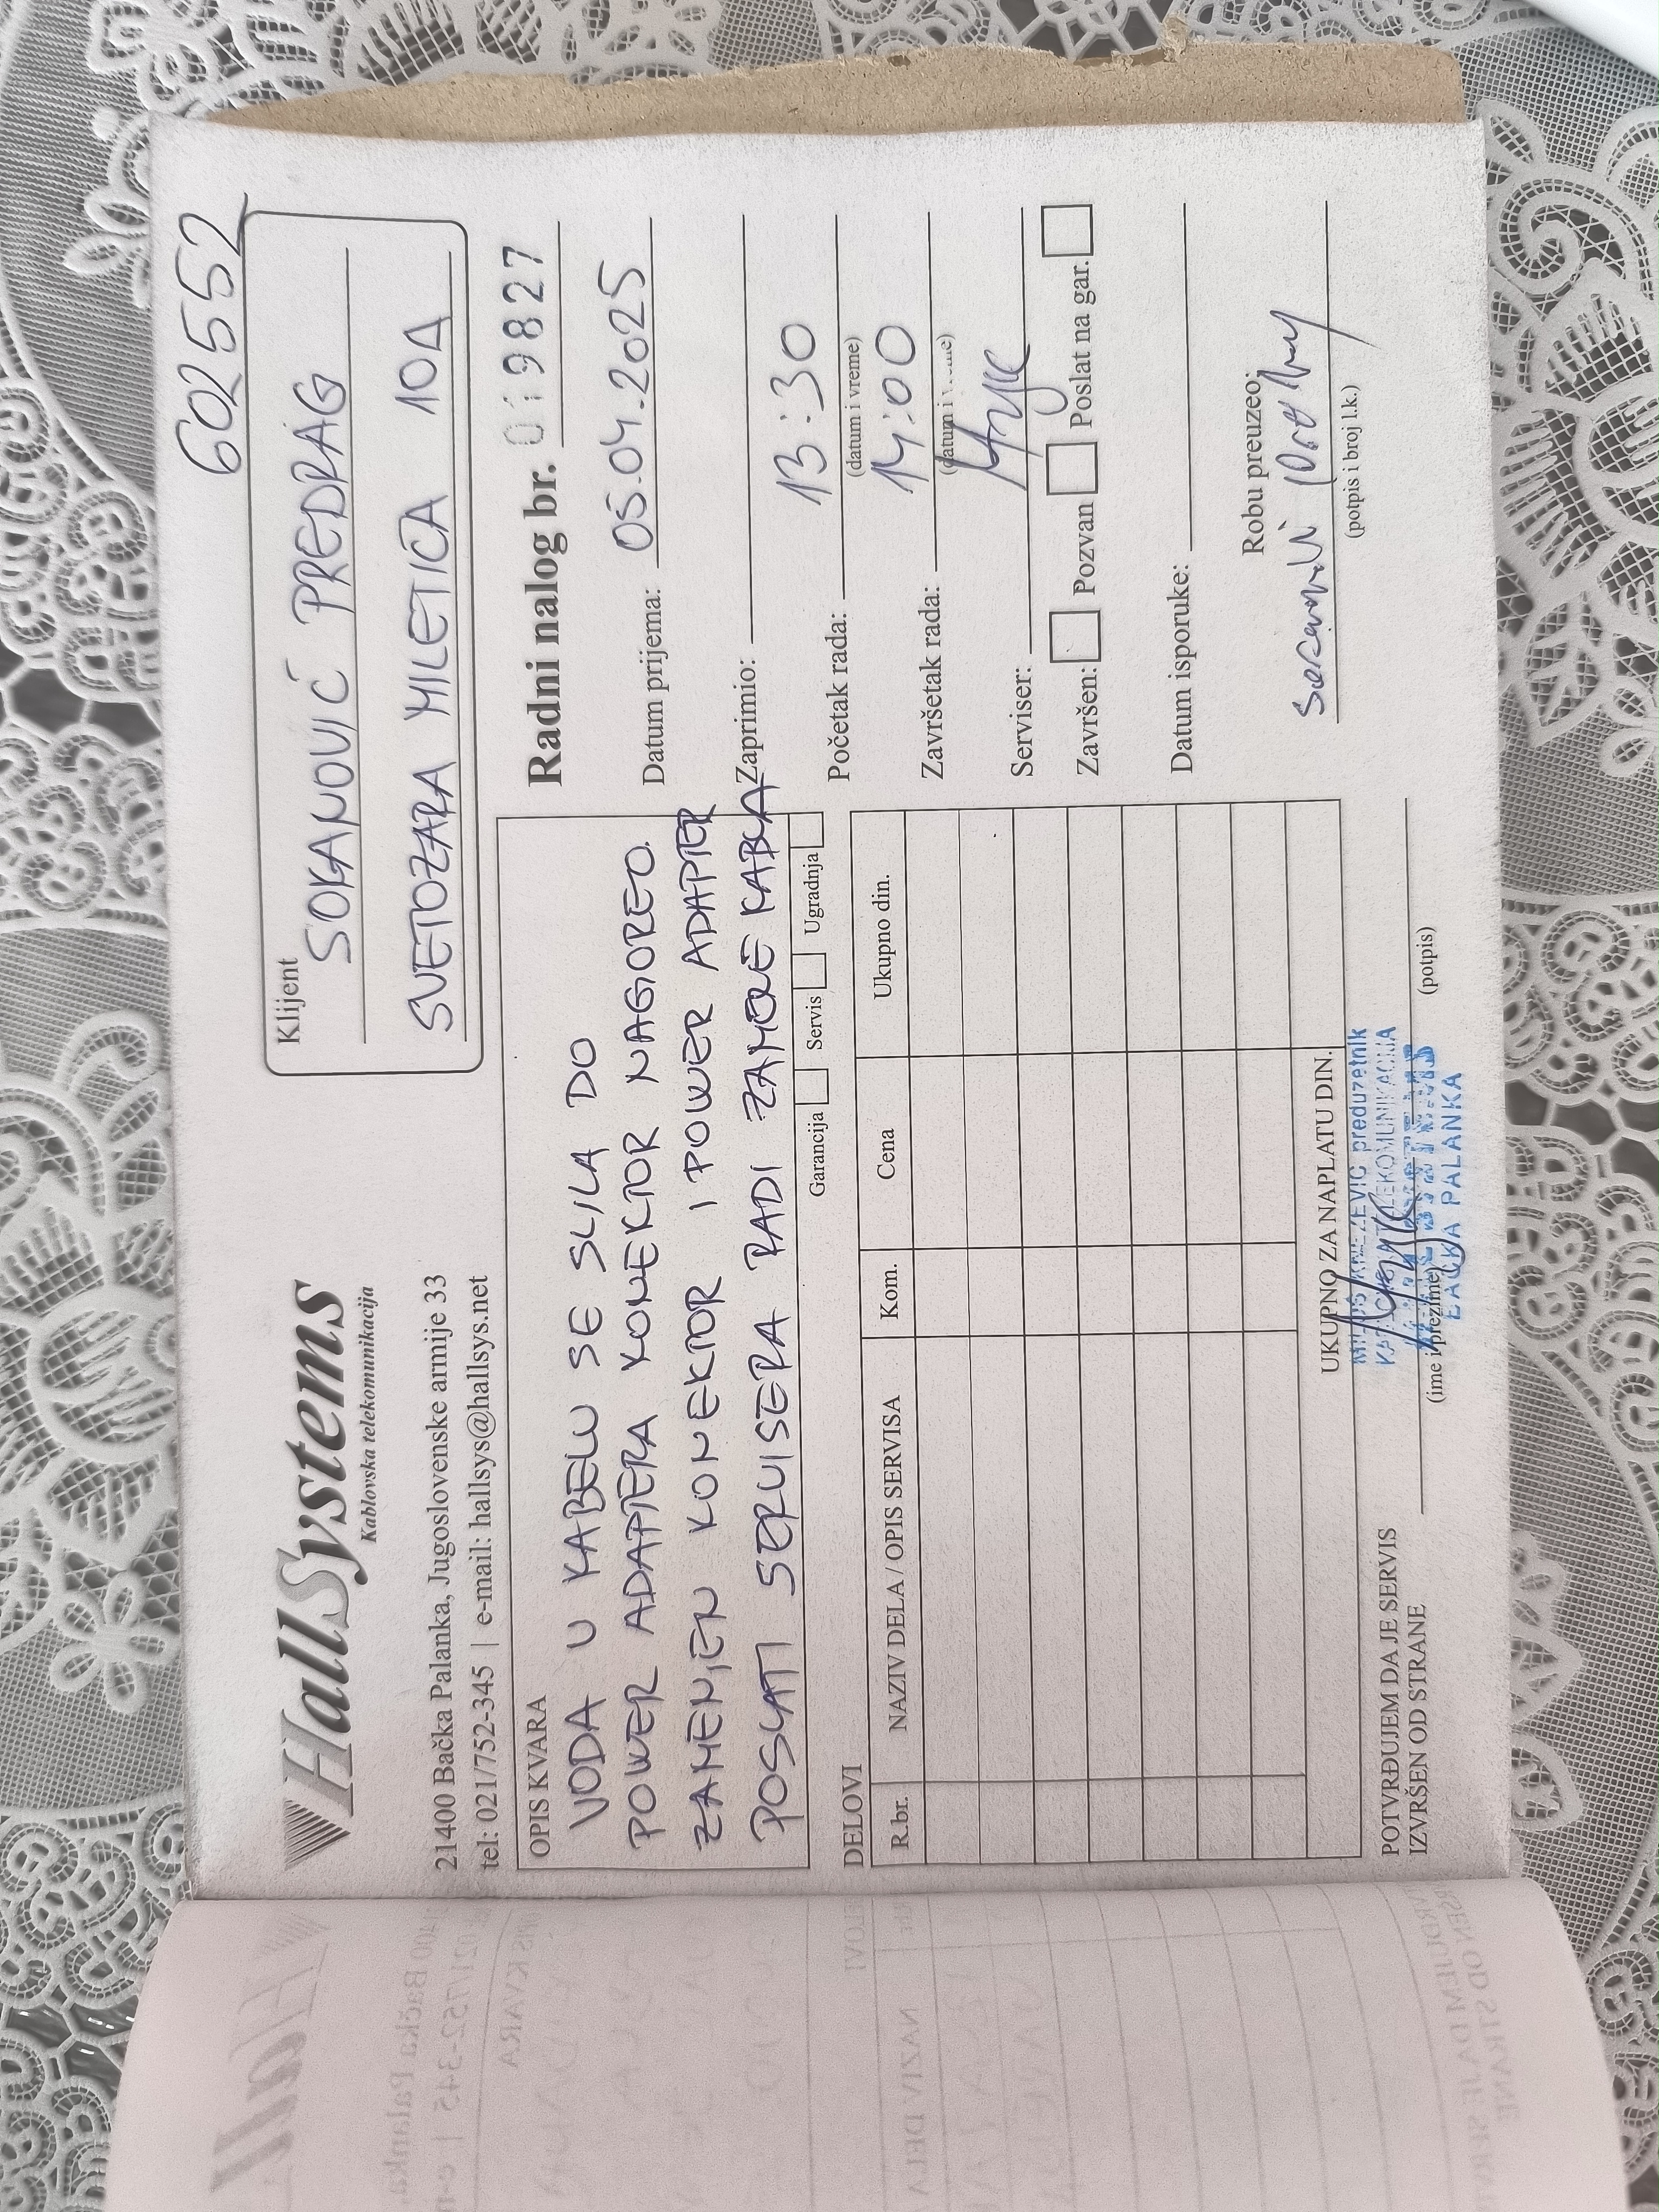 602552
HallSystems
Kablovska telekomunikacija
21400 Bačka Palanka, Jugoslovenske armije 33
tel: 021/752-345 | e-mail: hallsys@hallsys.net
Klijent
SOKANOVIĆ PREDRAG
SVETOZARA MILETIĆA 10A
OPIS KVARA
VODA U KABELU SE SLILA DO
POWER ADAPTERA KONEKTOR NAGOREO.
ZAMENJEN KONEKTOR I POWER ADAPTER
POSLATI SERVISERA RADI ZAMENE KABLA
Garancija Servis Ugradnja
Radni nalog br. 019827
Datum prijema: 05.04.2025
Zaprimio:
Početak rada: 13:30
(datum i vreme)
Završetak rada: 14:00
(datum i
Serviser:
Završen: Pozvan Poslat na gar.
Datum isporuke:
Robu preuzeo:
(potpis i broj l.k.)
DELOVI
R.br. NAZIV DELA / OPIS SERVISA Kom. Cena Ukupno din.
UKUPNO ZA NAPLATU DIN.
POTVRĐUJEM DA JE SERVIS
IZVRŠEN OD STRANE
(ime i prezime) (potpis)
preduzetnik
BAČKA PALANKA